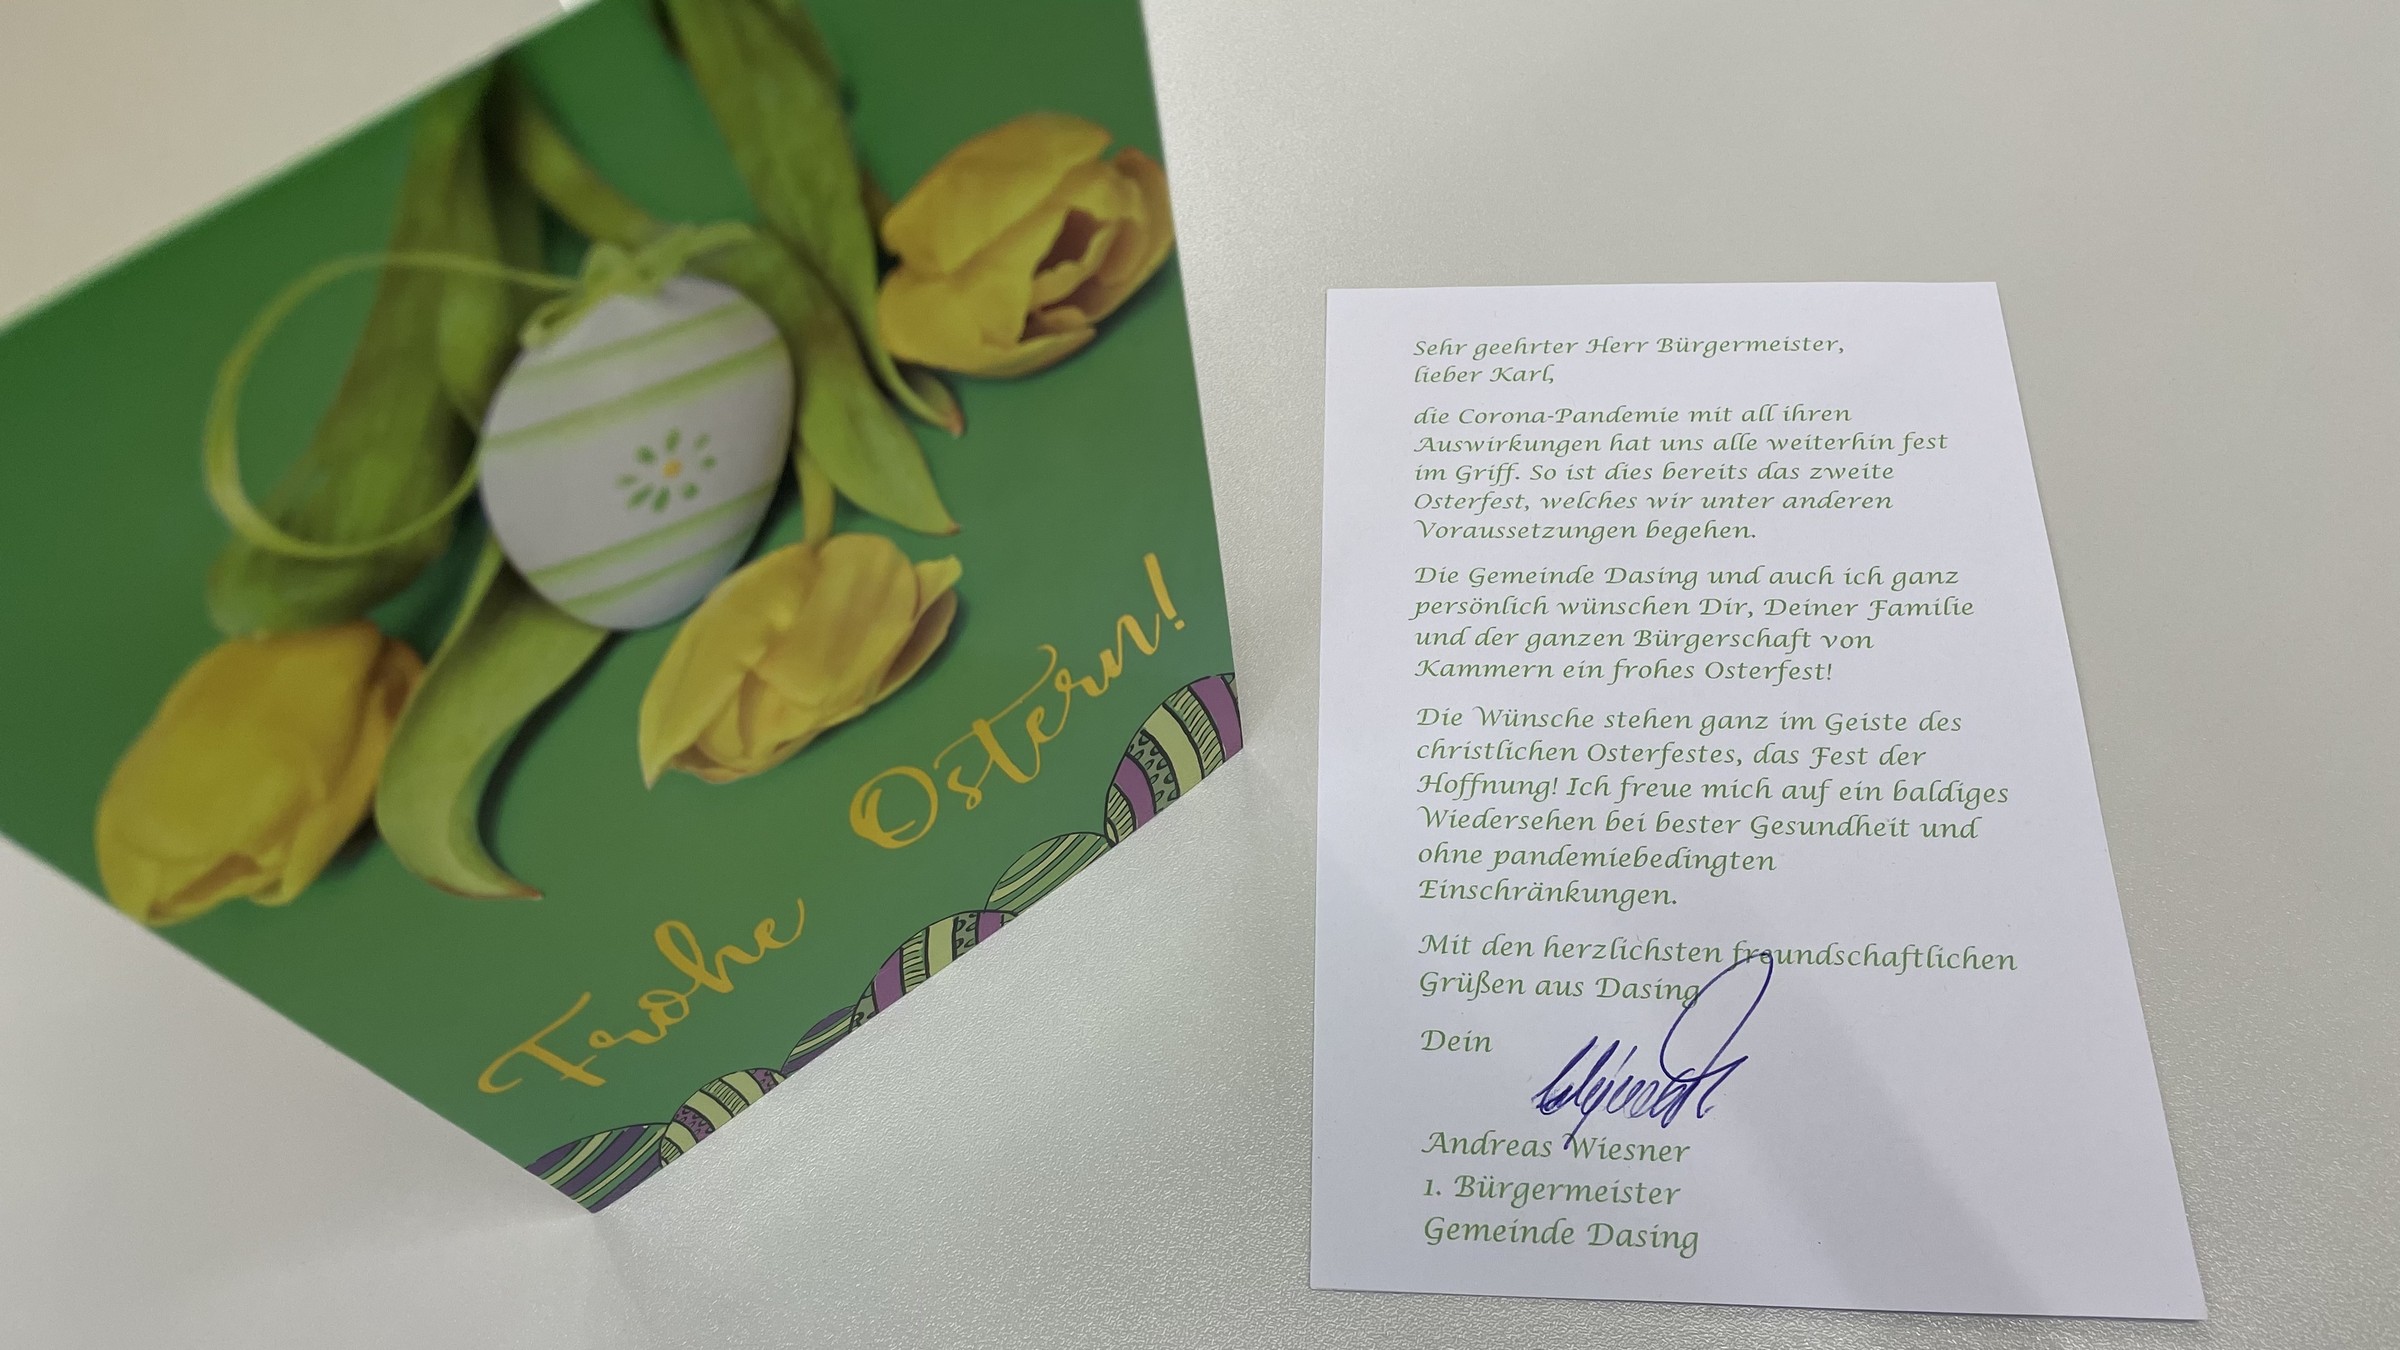 Frohe Ostern!
Sehr geehrter Herr Bürgermeister,
lieber Karl,
die Corona-Pandemie mit all ihren
Auswirkungen hat uns alle weiterhin fest
im Griff. So ist dies bereits das zweite
Osterfest, welches wir unter anderen
Voraussetzungen begehen.
Die Gemeinde Dasing und auch ich ganz
persönlich wünschen Dir, Deiner Familie
und der ganzen Bürgerschaft von
Kammern ein frohes Osterfest!
Die Wünsche stehen ganz im Geiste des
christlichen Osterfestes, das Fest der
Hoffnung! Ich freue mich auf ein baldiges
Wiedersehen bei bester Gesundheit und
ohne pandemiebedingten
Einschränkungen.
Mit den herzlichsten freundschaftlichen
Grüßen aus Dasing
Dein
Andreas Wiesner
1. Bürgermeister
Gemeinde Dasing